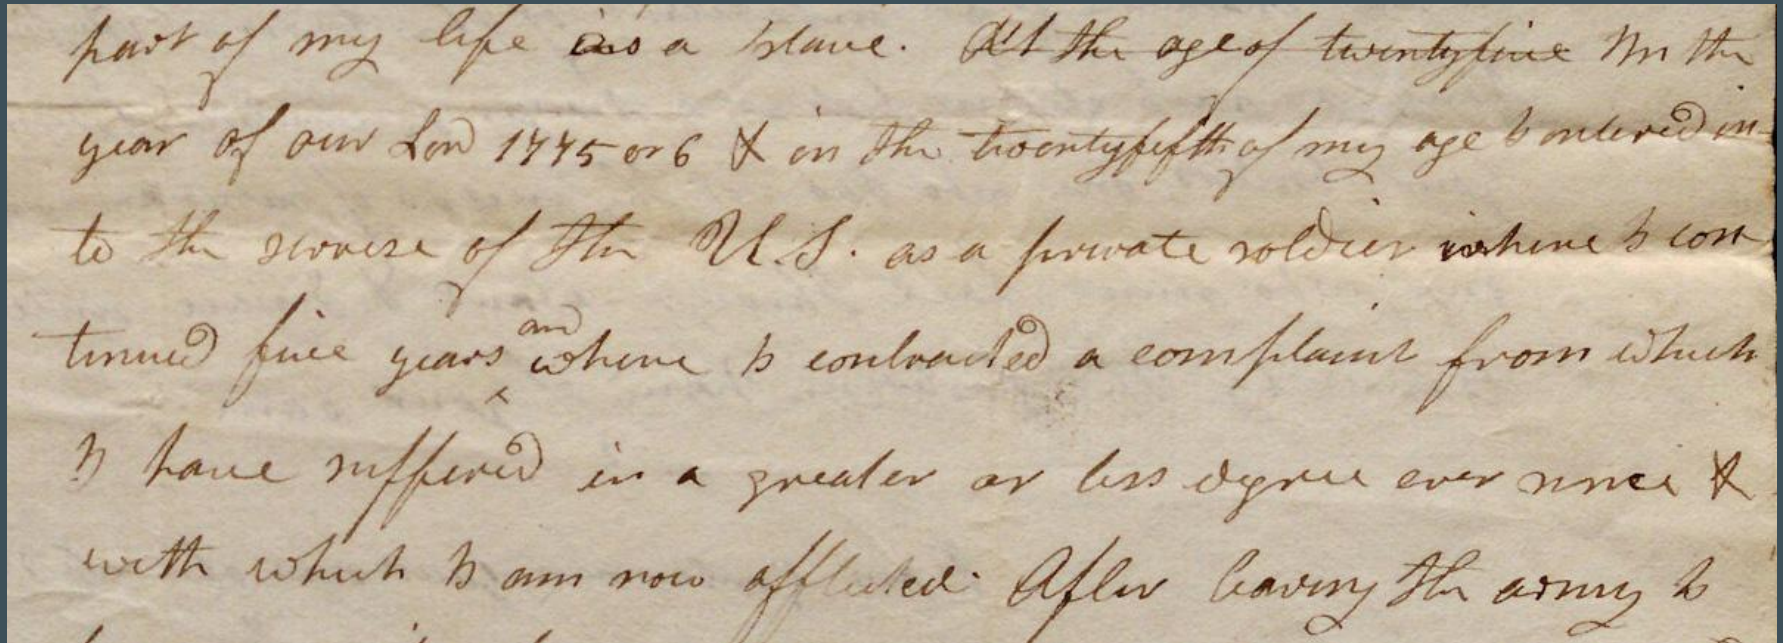 part of my life as a slave. At the age of twentyfive In the
year of our Lord 1775 or 6 & in the twentyfifth of my age I entered in-
to the servise of the U.S. as a private soldier where I con-
tinued five years and where I contracted a complaint from which
I have suffered in a greater or less degree ever since &
with which I am now afflicted. After leaving the army I